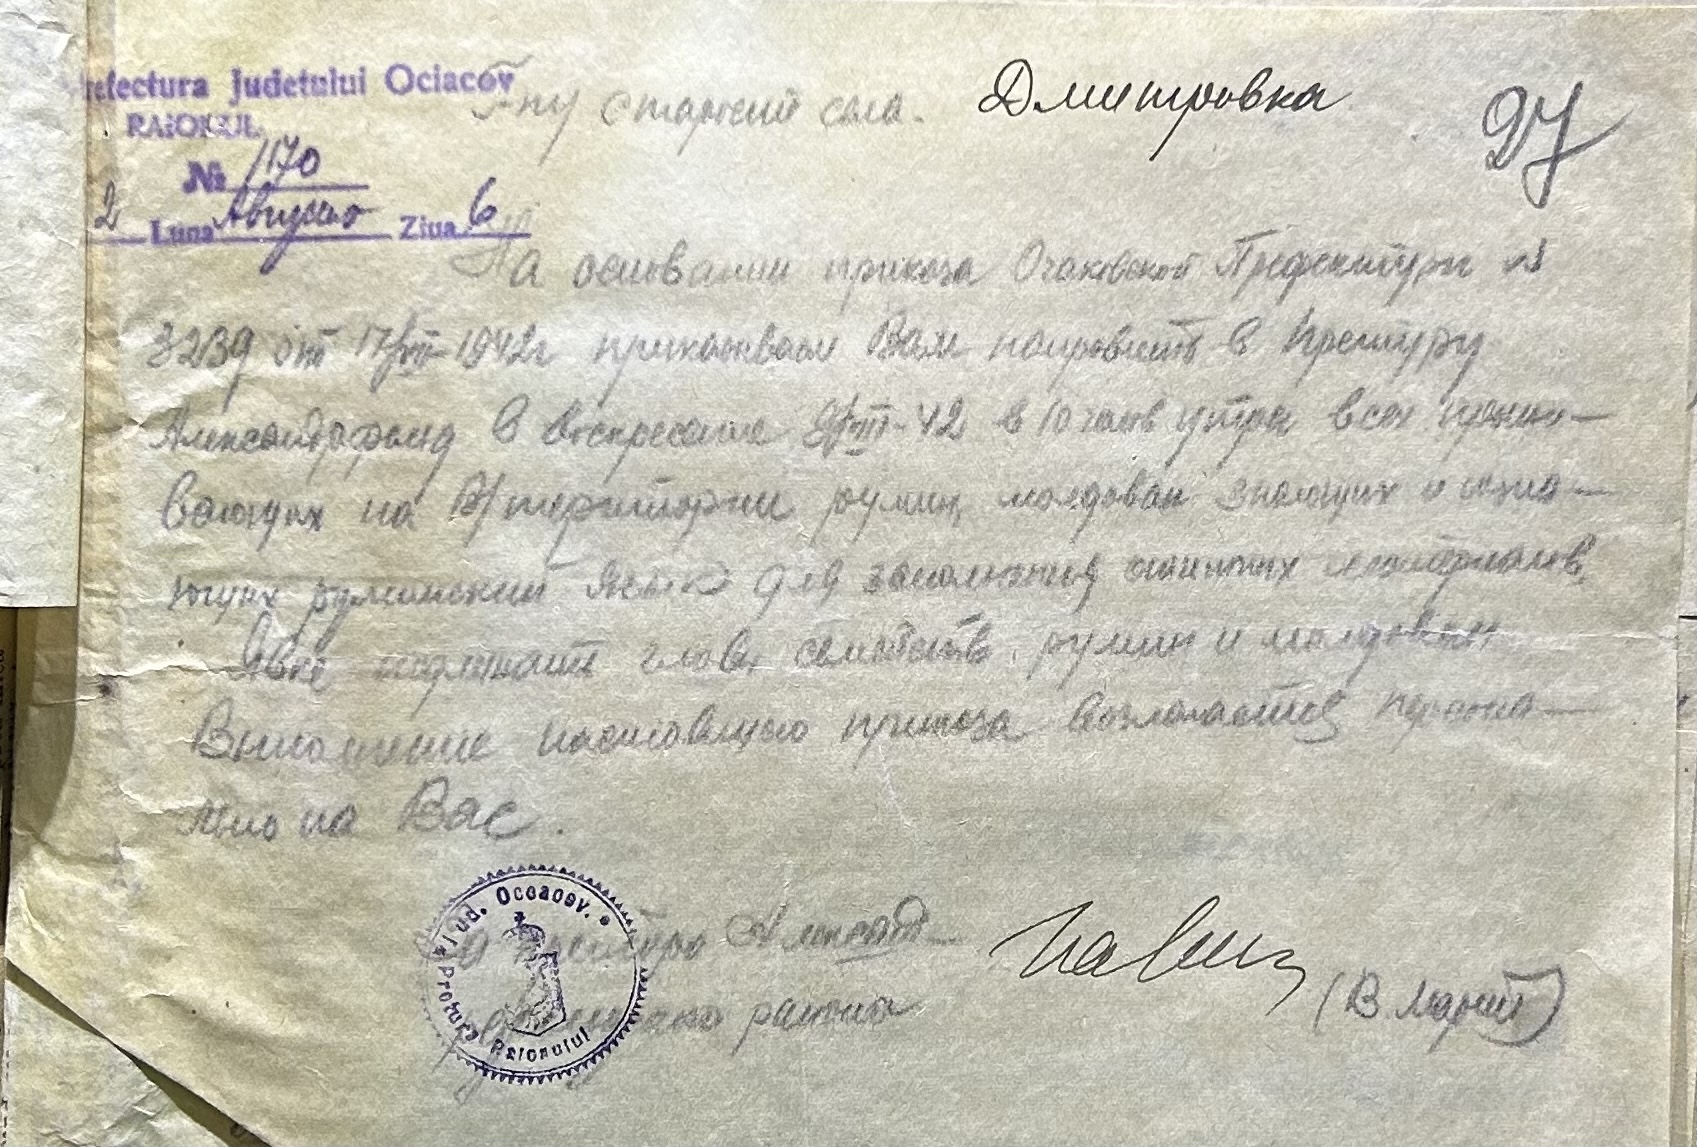 Prefectura Judetului Ociacov
RAIONUL
№ 1170
2 Luna Август Ziua 6
Г-ну старосте села. Дмитровка
97
На основании приказа Очаковской Префектуры №
3239 от 17/VII-1942г приказываем Вам направить в Претуру
Александрфельд в воскресение 9/VIII-42 в 10 часов утра всех прожи-
вающих на В/территории румын, молдован знающих и незна-
ющих румынский язык для заполнения
Явке подлежат главы семейств, румын и молдован
Выполнение настоящего приказа возлагается персона-
льно на Вас.
Претора Александр-
района
(В. )
Jud. Oceacov.
Pretura Raionului